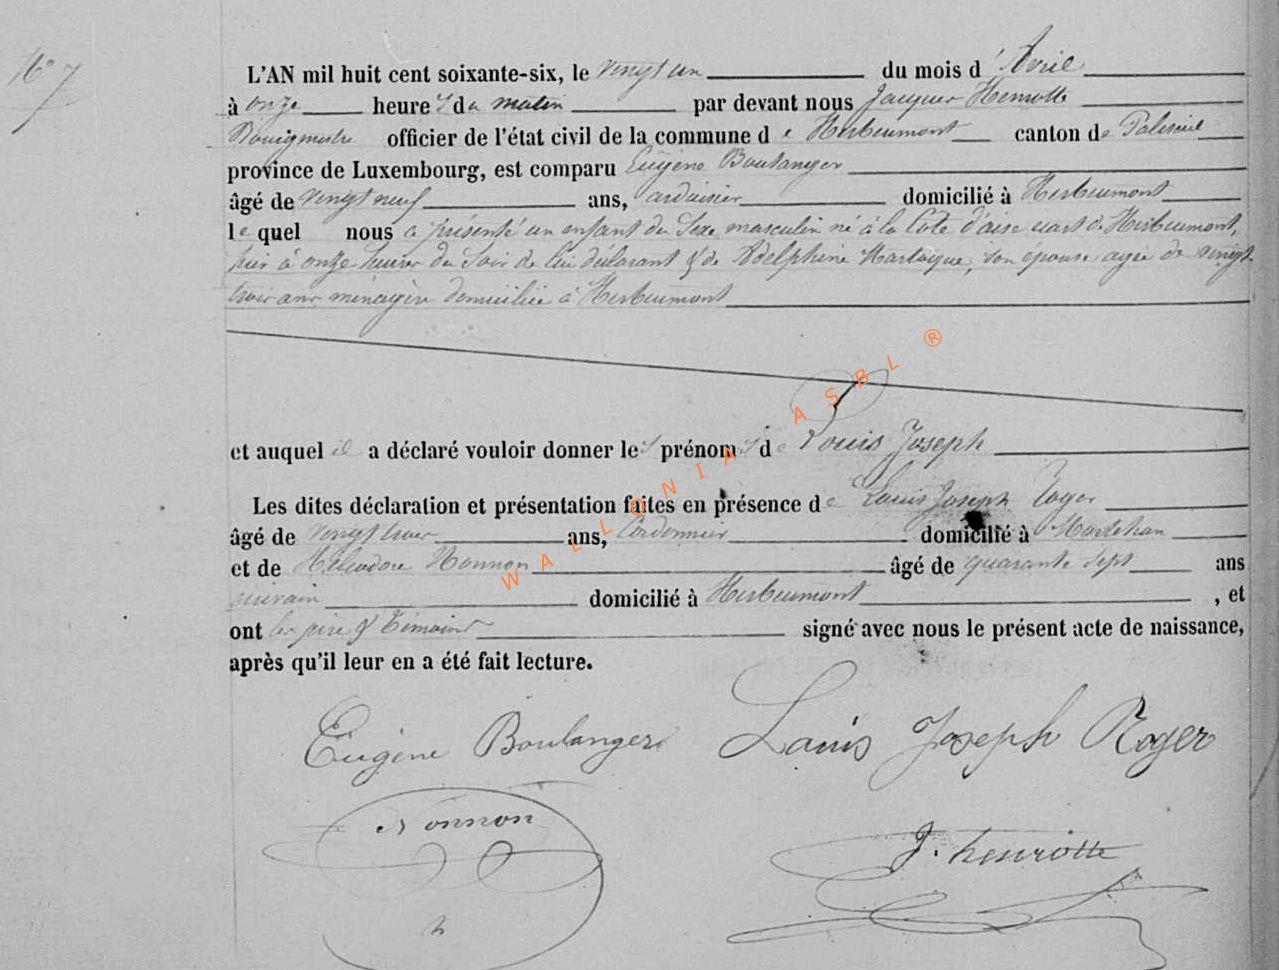 N° 7
L'AN mil huit cent soixante-six, le vingt un du mois d'Avril
à onze heures du matin par devant nous Jacques Henrotte
Bourgmestre officier de l'état civil de la commune de Herbeumont canton de Paliseul
province de Luxembourg, est comparu Eugène Boulanger
âgé de vingt neuf ans, ardoisier domicilié à Herbeumont
le quel nous a présenté un enfant du Sexe masculin né à la Cote d'aise de Herbeumont,
hier à onze heures du Soir de lui déclarant & de Adelphine Marlaque, son épouse agée de vingt
trois ans ménagère domiciliée à Herbeumont
et auquel il a déclaré vouloir donner les prénoms de Louis Joseph
Les dites déclaration et présentation faites en présence de Louis Joseph Roger
âgé de vingt trois ans, Cordonnier domicilié à Mortehan
et de Héliodore Nonnon âgé de quarante Sept ans
domicilié à Herbeumont, et
ont les père & témoins signé avec nous le présent acte de naissance,
après qu'il leur en a été fait lecture.
Eugène Boulanger Louis Joseph Roger
Nonnon
J. henrotte
WALLONIA ASBL ®